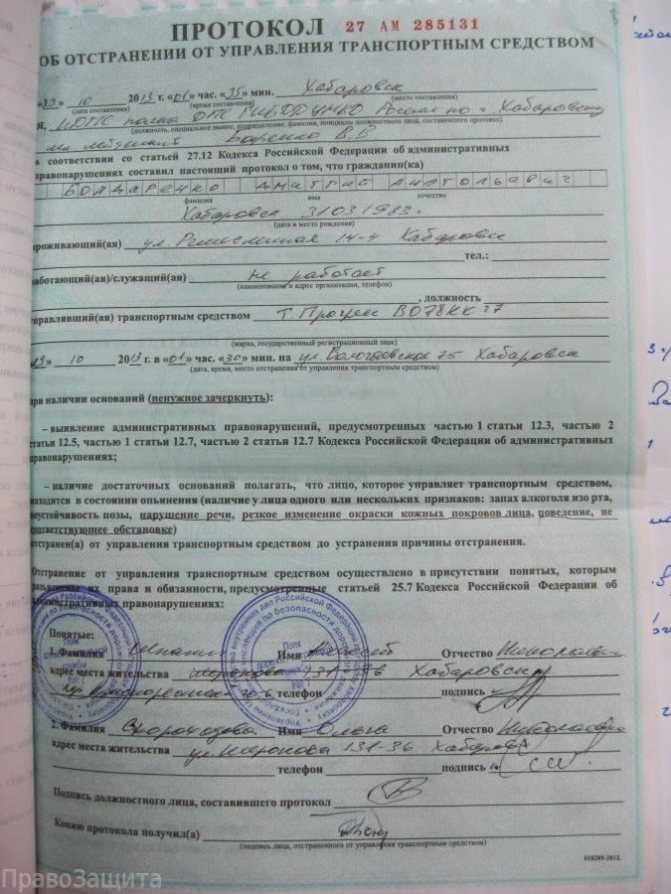 ПРОТОКОЛ 27 АМ 285131
ОБ ОТСТРАНЕНИИ ОТ УПРАВЛЕНИЯ ТРАНСПОРТНЫМ СРЕДСТВОМ
10 2013 г. «01» час. «35» мин. Хабаровск
(дата составления) (время составления) (место составления)
я, ИДПС полка ДПС ГИБДД УМВД России по г. Хабаровску
(должность, специальное звание, подразделение, фамилия, инициалы должностного лица, составившего протокол)
мл. лейтенант
в соответствии со статьей 27.12 Кодекса Российской Федерации об административных
правонарушениях составил настоящий протокол о том, что гражданин(ка)
БОНДАРЕНКО ДМИТРИЙ АНАТОЛЬЕВИЧ
фамилия имя отчество
Хабаровск 31031983
(дата и место рождения)
проживающий(ая) ул. 14-4 Хабаровск
тел.:
работающий(ая)/служащий(ая) не работает
(наименование и адрес организации, телефон)
, должность
управлявший(ая) транспортным средством Т. ВО78КК 27
(марка, государственный регистрационный знак)
10 2013 г. в «01» час. «30» мин. на ул. 75 Хабаровск
(дата, время, место отстранения от управления транспортным средством)
при наличии оснований (ненужное зачеркнуть):
– выявление административных правонарушений, предусмотренных частью 1 статьи 12.3, частью 2
статьи 12.5, частью 1 статьи 12.7, частью 2 статьи 12.7 Кодекса Российской Федерации об административных
правонарушениях;
– наличие достаточных оснований полагать, что лицо, которое управляет транспортным средством,
находится в состоянии опьянения (наличие у лица одного или нескольких признаков: запах алкоголя изо рта,
неустойчивость позы, нарушение речи, резкое изменение окраски кожных покровов лица, поведение, не
соответствующее обстановке)
отстранен(а) от управления транспортным средством до устранения причины отстранения.
Отстранение от управления транспортным средством осуществлено в присутствии понятых, которым
разъяснены их права и обязанности, предусмотренные статьей 25.7 Кодекса Российской Федерации об
административных правонарушениях:
Понятые:
1. Фамилия Имя Отчество Николаевич
адрес места жительства Хабаровск
телефон подпись
2. Фамилия Имя Ольга Отчество Николаевна
адрес места жительства 131-36 Хабаровск
телефон подпись
Подпись должностного лица, составившего протокол
Копию протокола получил(а)
(подпись лица, отстраненного от управления транспортным средством)
ПравоЗащита